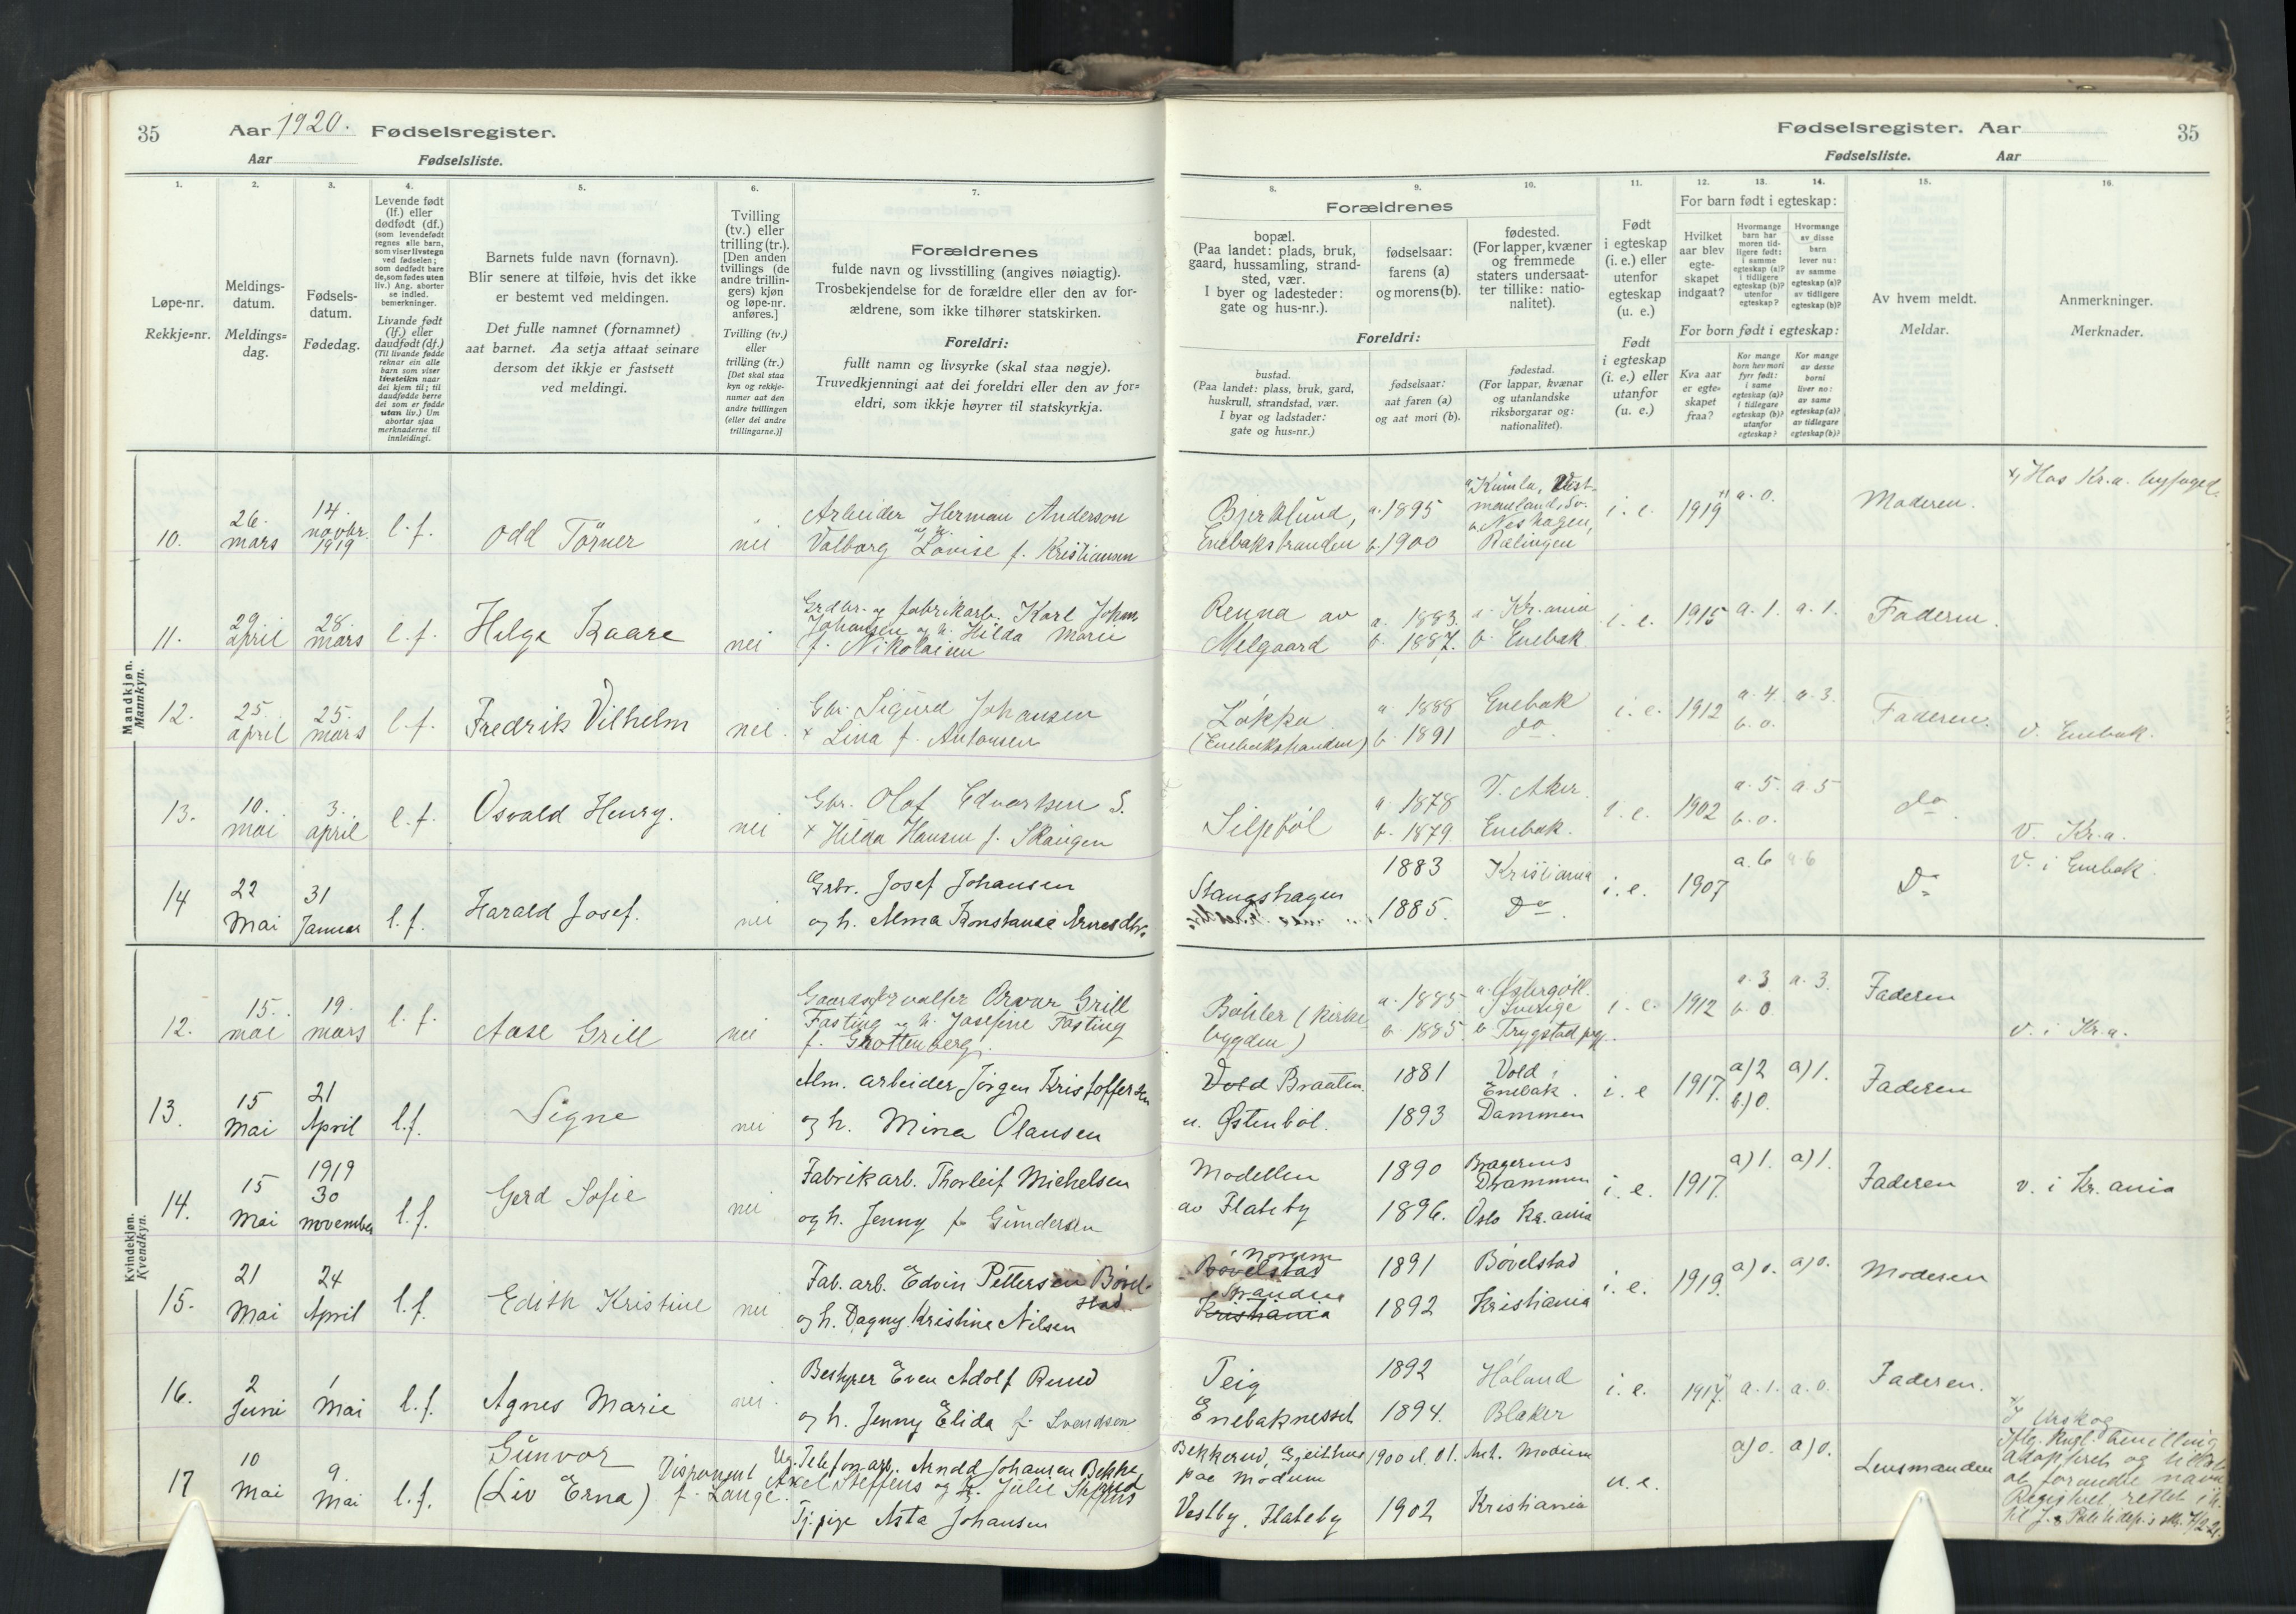 35
Aar 1920. Fødselsregister.
Aar
Fødselsliste.
Fødselsregister. Aar
35
Fødselsliste.
Aar
1.
Løpe-nr.
Rekkje=nr.
2.
Meldings-
datum.
Meldings=
dag.
3.
Fødsels-
datum.
Fødedag.
4.
Levende født
(lf.) eller
dødfødt (df.)
(som levendefødt
regnes alle barn,
som viser livstegn
ved fødselen;
som dødfødt bare
de, som fødes uten
liv.) Ang. aborter
se indled.
bemerkninger.
Livande født
(lf.) eller
daudfødt (df.)
(Til livande fødde
reknar ein alle
barn som viser
livsteikn naar
dei kjem til; til
daudfødde berre
dei som er fødde
utan liv.) Um
abortar sjaa
merknaderne til
innleidingi.
5.
Barnets fulde navn (fornavn).
Blir senere at tilføie, hvis det ikke
er bestemt ved meldingen.
Det fulle namnet (fornamnet)
aat barnet. Aa setja attaat seinare
dersom det ikkje er fastsett
ved meldingi.
6.
Tvilling
(tv.) eller
trilling (tr.).
[Den anden
tvillings (de
andre trillin-
gers) kjøn
og løpe-nr.
anføres.]
Tvilling (tv.)
eller
trilling (tr.)
[Det skal staa
kyn og rekkje-
numer aat den
andre tvillingen
(eller dei andre
trillingarne.)]
7.
Forældrenes
fulde navn og livsstilling (angives nøiagtig).
Trosbekjendelse for de forældre eller den av for-
ældrene, som ikke tilhører statskirken.
Foreldri:
fullt namn og livsyrke (skal staa nøgje).
Truvedkjenningi aat dei foreldri eller den av for=
eldri, som ikkje høyrer til statskyrkja.
Forældrenes
8.
bopæl.
(Paa landet: plads, bruk,
gaard, hussamling, strand-
sted, vær.
I byer og ladesteder:
gate og hus-nr.).
Foreldri:
bustad.
(Paa landet: plass, bruk, gard,
huskrull, strandstad, vær.
I byar og ladstader:
gate og hus=nr.)
9.
fødselsaar:
farens (a)
og morens (b).
fødselsaar:
aat faren (a)
og aat mori (b).
10.
fødested.
(For lapper, kvæner
og fremmede
staters undersaat-
ter tillike: natio-
nalitet).
fødestad.
(For lappar, kvænar
og utanlandske
riksborgarar og:
nationalitet).
11.
Født
i egteskap
(i. e.) eller
utenfor
egteskap
(u. e.)
Født
i egteskap
(i. e.) eller
utanfor
(u. e.)
For barn født i egteskap:
12.
Hvilket
aar blev
egte-
skapet
indgaat?
13.
Hvormange
barn har
moren tid-
ligere født:
i samme
egteskap (a)?
i tidligere
egteskap (b)?
utenfor
egteskap?
14.
Hvormange
av disse
barn
lever nu:
av samme
egteskap (a)?
av tidligere
egteskap (b)?
For born født i egteskap:
Kva aar
er egte-
skapet
fraa?
Kor mange
born hev mori
fyrr født:
i same
egteskap (a)?
i tidlegare
egteskap (b)?
utanfor
egteskap?
Kor mange
av desse
borni
liver no:
av same
egteskap (a)?
av tidlegare
egteskap (b)?
15.
Av hvem meldt.
Meldar.
16.
Anmerkninger.
Merknader.
Mandkjøn.
Mannkyn.
10.
26.
mars
14.
novbr.
1919
l. f.
Odd Törner
nei
Arbeider Herman Anderson
og h.
Valborg Lovise f. Kristiansen
Bjerklund,
Enebakstranden
a. 1895
b. 1900
a Kumla, Vest-
manland, Sv.
b. Neshagen,
Rælingen
i. e.
1919
a. 0.
Moderen.
x) Hos Kr.a. byfoged.
11.
29
april
28.
mars
l. f.
Helge Kaare
nei
Grdbr. og fabrikarb. Karl Johan
Johansen og h. Hilda Marie
f. Nikolaisen
Renna av
Melgaard
a. 1883.
b. 1887.
a. Kr.ania
b. Enebak
i. e.
1915
a. 1.
a. 1.
Faderen.
12.
25.
april
25.
mars
l. f.
Fredrik Vilhelm
nei
Gbr. Sigurd Johansen
+ Lina f. Antonsen
Løkka
(Enebakstranden)
a. 1888
b. 1891
Enebak
do.
i. e.
1912
a. 4
b. 0.
a. 3.
Faderen.
v. Enebak.
13.
10.
mai
3.
april
l. f.
Osvald Henry.
nei
Gbr. Olaf Edvardsen S.
+ Hilda Hansen f. Skaugen
Siljebøl
a 1878
b. 1879.
V. Aker.
Enebak.
i. e.
1902
a. 5.
b. 0.
a. 5
do.
V. Kr.a.
14
22
Mai
31
Januar
l. f.
Harald Josef.
nei
Grbr. Josef Johansen
og h. Alma Konstanse Arnesdtr.
Stangshagen
1883
1885.
Kristiania
Do.
i. e.
1907
a. 6
a 6
Do
V. i Enebak.
Kvindekjøn.
Kvendkyn.
12.
15.
mai
19.
mars
l. f.
Aase Grill
nei
Gaardsforvalter Orvar Grill
Fasting og h. Josefine Fasting
f. Grottenberg.
Bøhler (Kirke
bygden)
a. 1885
b. 1885
a. Østergötl.
Sverige
b. Trygstad pgj.
i. e.
1912
a. 3
b. 0.
a. 3.
Faderen
v. i Kr.a.
13.
15
Mai
21
April
l.f.
Signe
nei
Alm. arbeider Jörgen Kristoffersen
og h. Mina Olausen
Vold Braaten
u. Østenböl.
1881
1893
Vold i
Enebak.
Dammen
i. e
1917.
a) 2
b) 0.
a) 1.
Faderen
14.
15
Mai
1919
30
november
l.f.
Gerd Sofie
nei
Fabrikarb. Thorleif Michelsen
og h. Jenny f. Gundersen
Modellen
av Flateby
1890
1896.
Bragernes
Drammen
Oslo Kr.ania
i. e.
1917.
a) 1.
a) 1.
Faderen
v. i Kr.ania
15.
21
Mai
24
April
l.f.
Edith Kristine
nei
Fab. arb. Edvin Pettersen Bøvel-
stad
og h. Dagny Kristine Nilsen
Bøvelstad
Stranden
Kristiania
1891
1892
Bövelstad
Kristiania
i. e.
1919.
a) 0.
a) 0.
Moderen
16.
2
Juni
1
Mai
l.f.
Agnes Marie
nei.
Bestyrer Even Adolf Ruud
og h. Jenny Elida f. Svendsen
Teig
Enebaknesset.
1892
1894.
Höland
Blaker
i. e.
1917
a. 1.
a. 0.
Faderen.
x) I Urskog
17
10
Mai
9.
Mai
l.f.
Gunvor
(Liv Erna)
Disponent
Axel Steffens og h. Julie Steffens
f. Lange.
Ug. Telefonarb. Arnold Johansen Bekkerud
Tj. pige Asta Johansen
Bekkerud, Geithus
paa Modum
Vestby, Flateby
1900 el. 01.
1902
Ant. Modum
Kristiania
u. e.
a) 0.
a) 0.
Lensmanden
Iflg. kngl. bevilling
adopteret og tillatt
at forandre navn
Registret rettet i h.